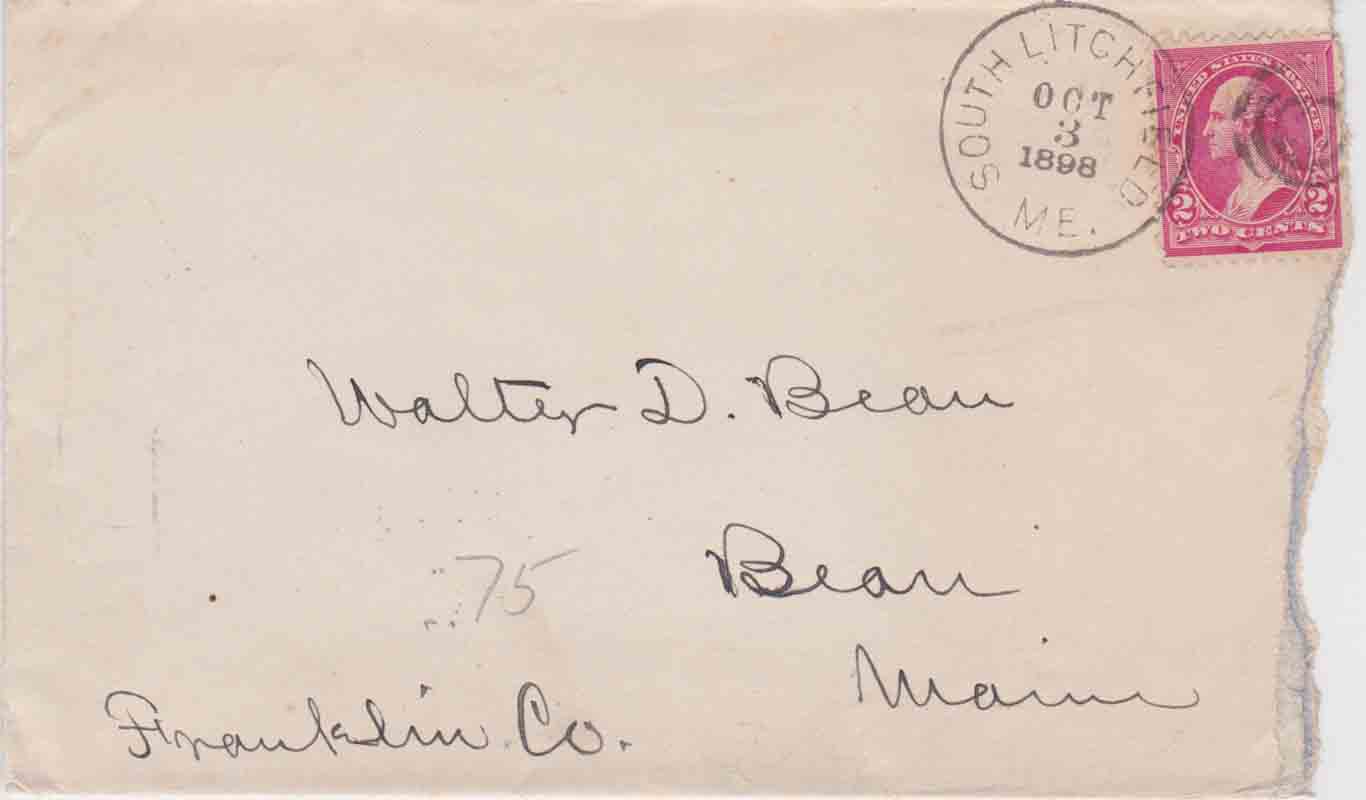 SOUTH LITCHFIELD
OCT
3
1898
ME.
UNITED STATES POSTAGE
2 2
TWO CENTS
Walter D. Bean
Bean
75
Maine
Franklin Co.